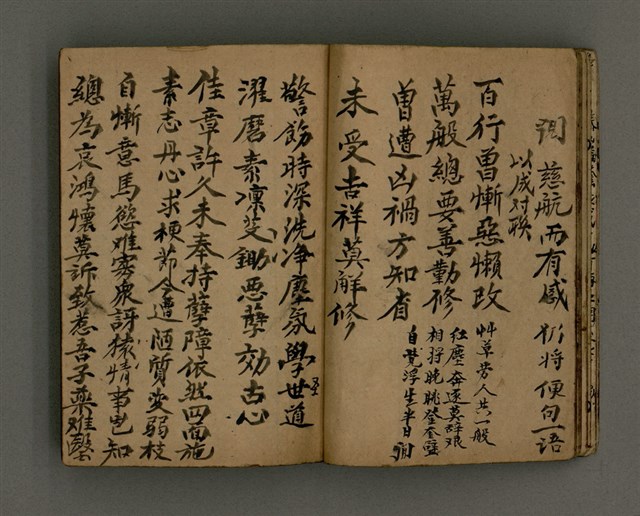 慈航而有感 仍將便句一語
以成对联
百行曽慚惡懶改
萬般總要善勤修
曽遭凶禍方知省
未受吉祥莫解修
艸草劳人共一般
紅塵奔逐莫辞艰
相将晚眺登奎壁
自覺浮生半日
警飭時深洗净塵氛學世道
濯磨泰凛芟鋤悪孽効古心
佳章許久未奉持孽障依然四面施
素志丹心求梗節今遭陋質変弱枝
自慚意馬慾难寄衆訝猿情事已知
總為哀鴻懷莫訴致惹吾子藥难醫